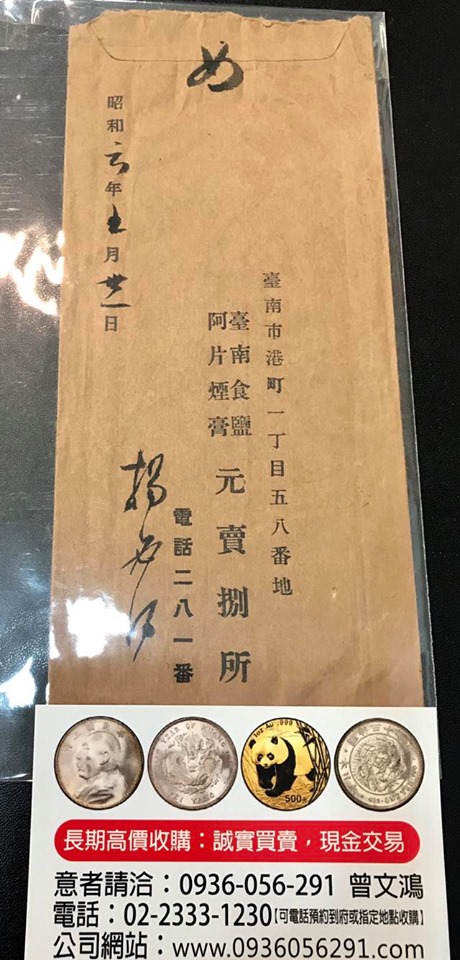 臺南市港町一丁目五八番地
臺南食鹽
阿片煙膏
元賣捌所
電話二八一番
昭和六年五月日
1oz Au .999
500元
長期高價收購：誠實買賣，現金交易
意者請洽：0936-056-291 曾文鴻
電話：02-2333-1230【可電話預約到府或指定地點收購】
公司網站：www.0936056291.com